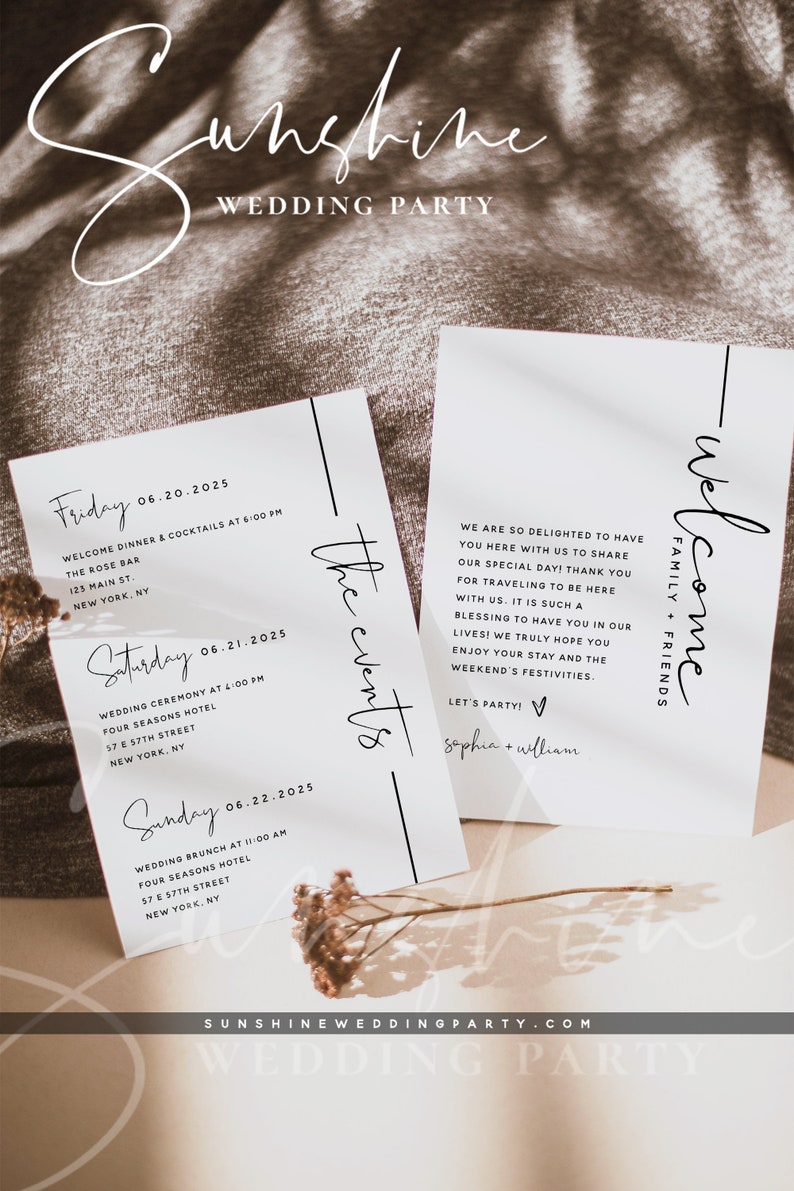 Sunshine
WEDDING PARTY
Friday 06.20.2025
WELCOME DINNER & COCKTAILS AT 6:00 PM
THE ROSE BAR
123 MAIN ST.
NEW YORK, NY
Saturday 06.21.2025
WEDDING CEREMONY AT 4:00 PM
FOUR SEASONS HOTEL
57 E 57TH STREET
NEW YORK, NY
Sunday 06.22.2025
WEDDING BRUNCH AT 11:00 AM
FOUR SEASONS HOTEL
57 E 57TH STREET
NEW YORK, NY
the events
welcome
FAMILY + FRIENDS
WE ARE SO DELIGHTED TO HAVE
YOU HERE WITH US TO SHARE
OUR SPECIAL DAY! THANK YOU
FOR TRAVELING TO BE HERE
WITH US. IT IS SUCH A
BLESSING TO HAVE YOU IN OUR
LIVES! WE TRULY HOPE YOU
ENJOY YOUR STAY AND THE
WEEKEND'S FESTIVITIES.
LET'S PARTY!
sophia + william
Sunshine
SUNSHINEWEDDINGPARTY.COM
WEDDING PARTY